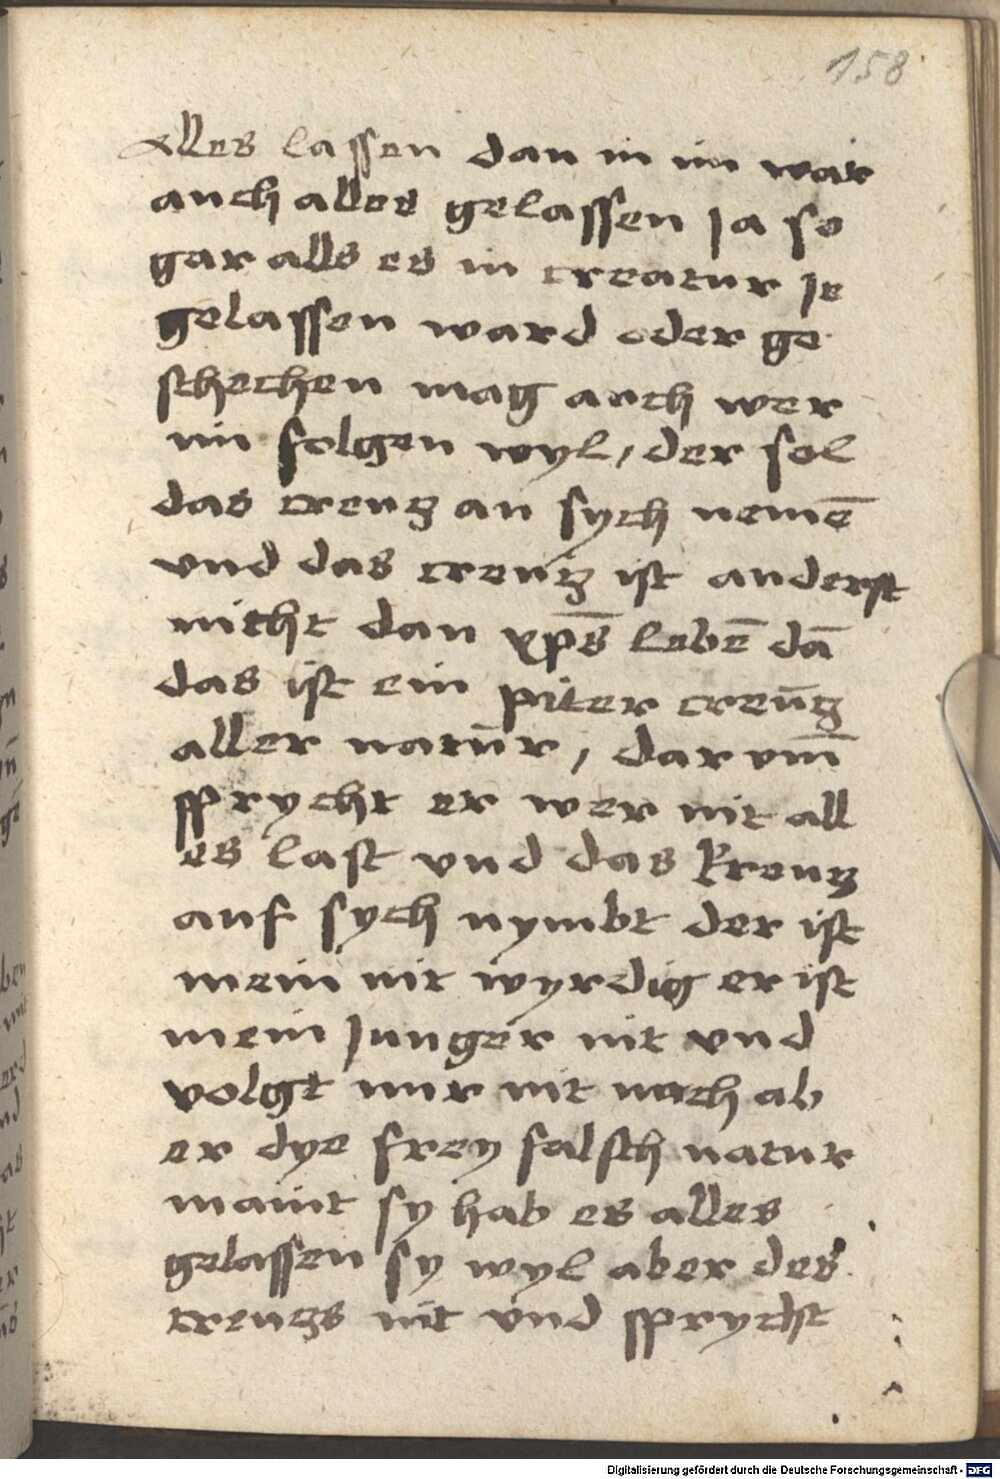 158
alles lassen dan in im war
auch alles gelassen Ja so
gar alls es in creatur Je
gelassen ward oder ge
schechen mag auch wer
im folgen wyl / der sol
das creutz an sych nemē
vnd das creutz ist anderst
nicht dan xp̄s lebē dā
das ist ein piter creūtz
aller natūr / dar vm̄
sprycht er wer nit all
es last vnd das kreutz
auf sych nymbt der ist
mein nit wyrdig er ist
mein Junger nit vnd
volgt mir nit nach ab
er dye frey falsch natur
maint sy hab es alles
gelassen sy wyl aber des
creutzs nit vnd sprycht
Digitalisierung gefördert durch die Deutsche Forschungsgemeinschaft - DFG